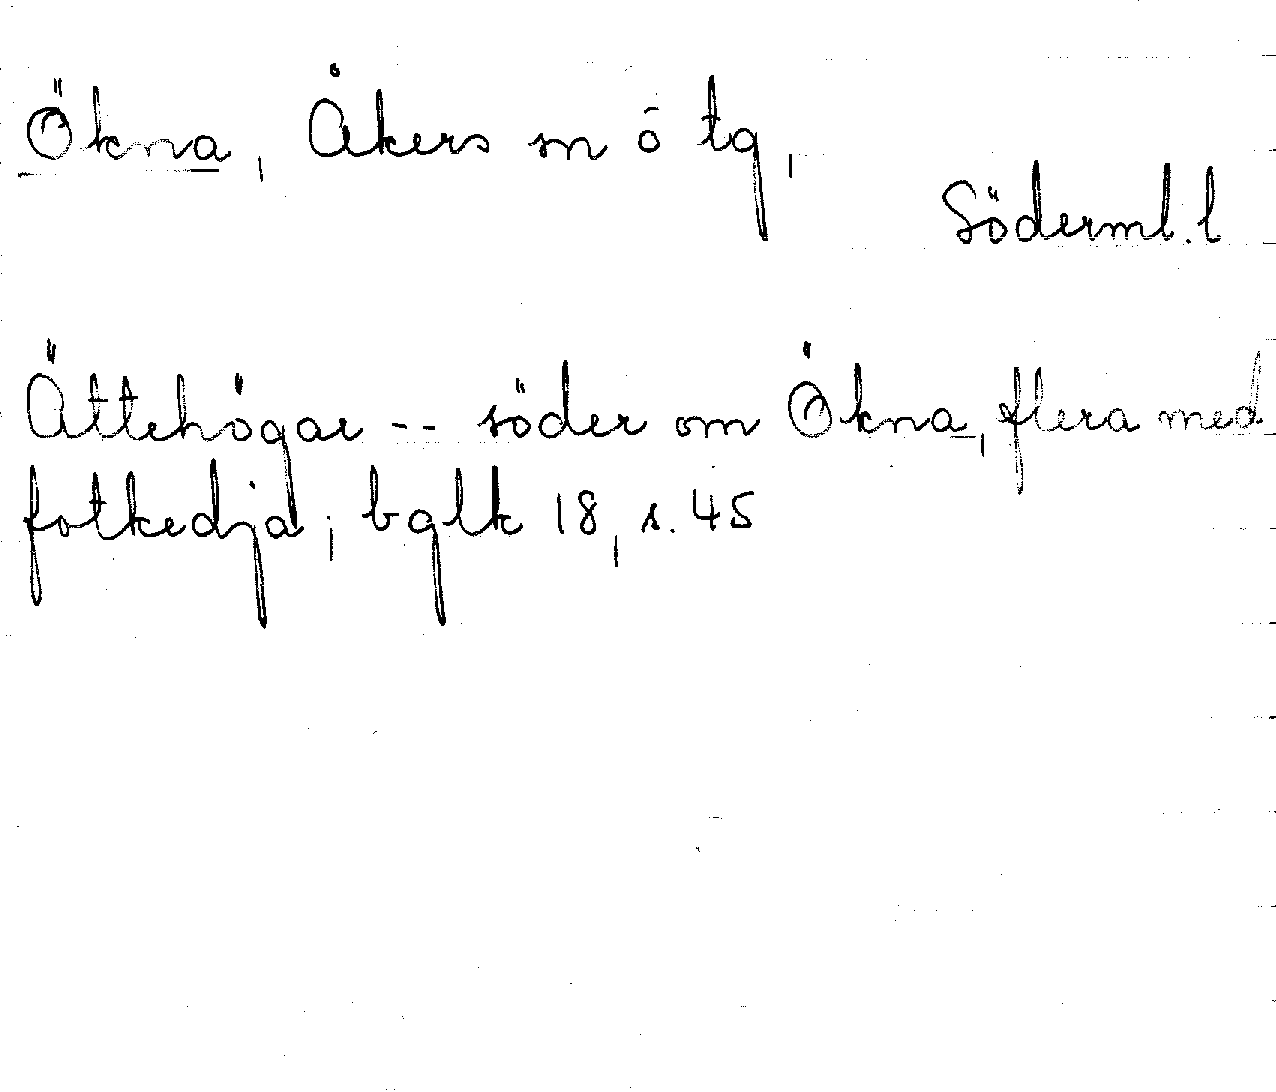 Ökna, Åkers sn ō tg,
Söderml. l
Ättehögar -- söder om Ökna, flera med
fotkedja; bglk 18, s. 45